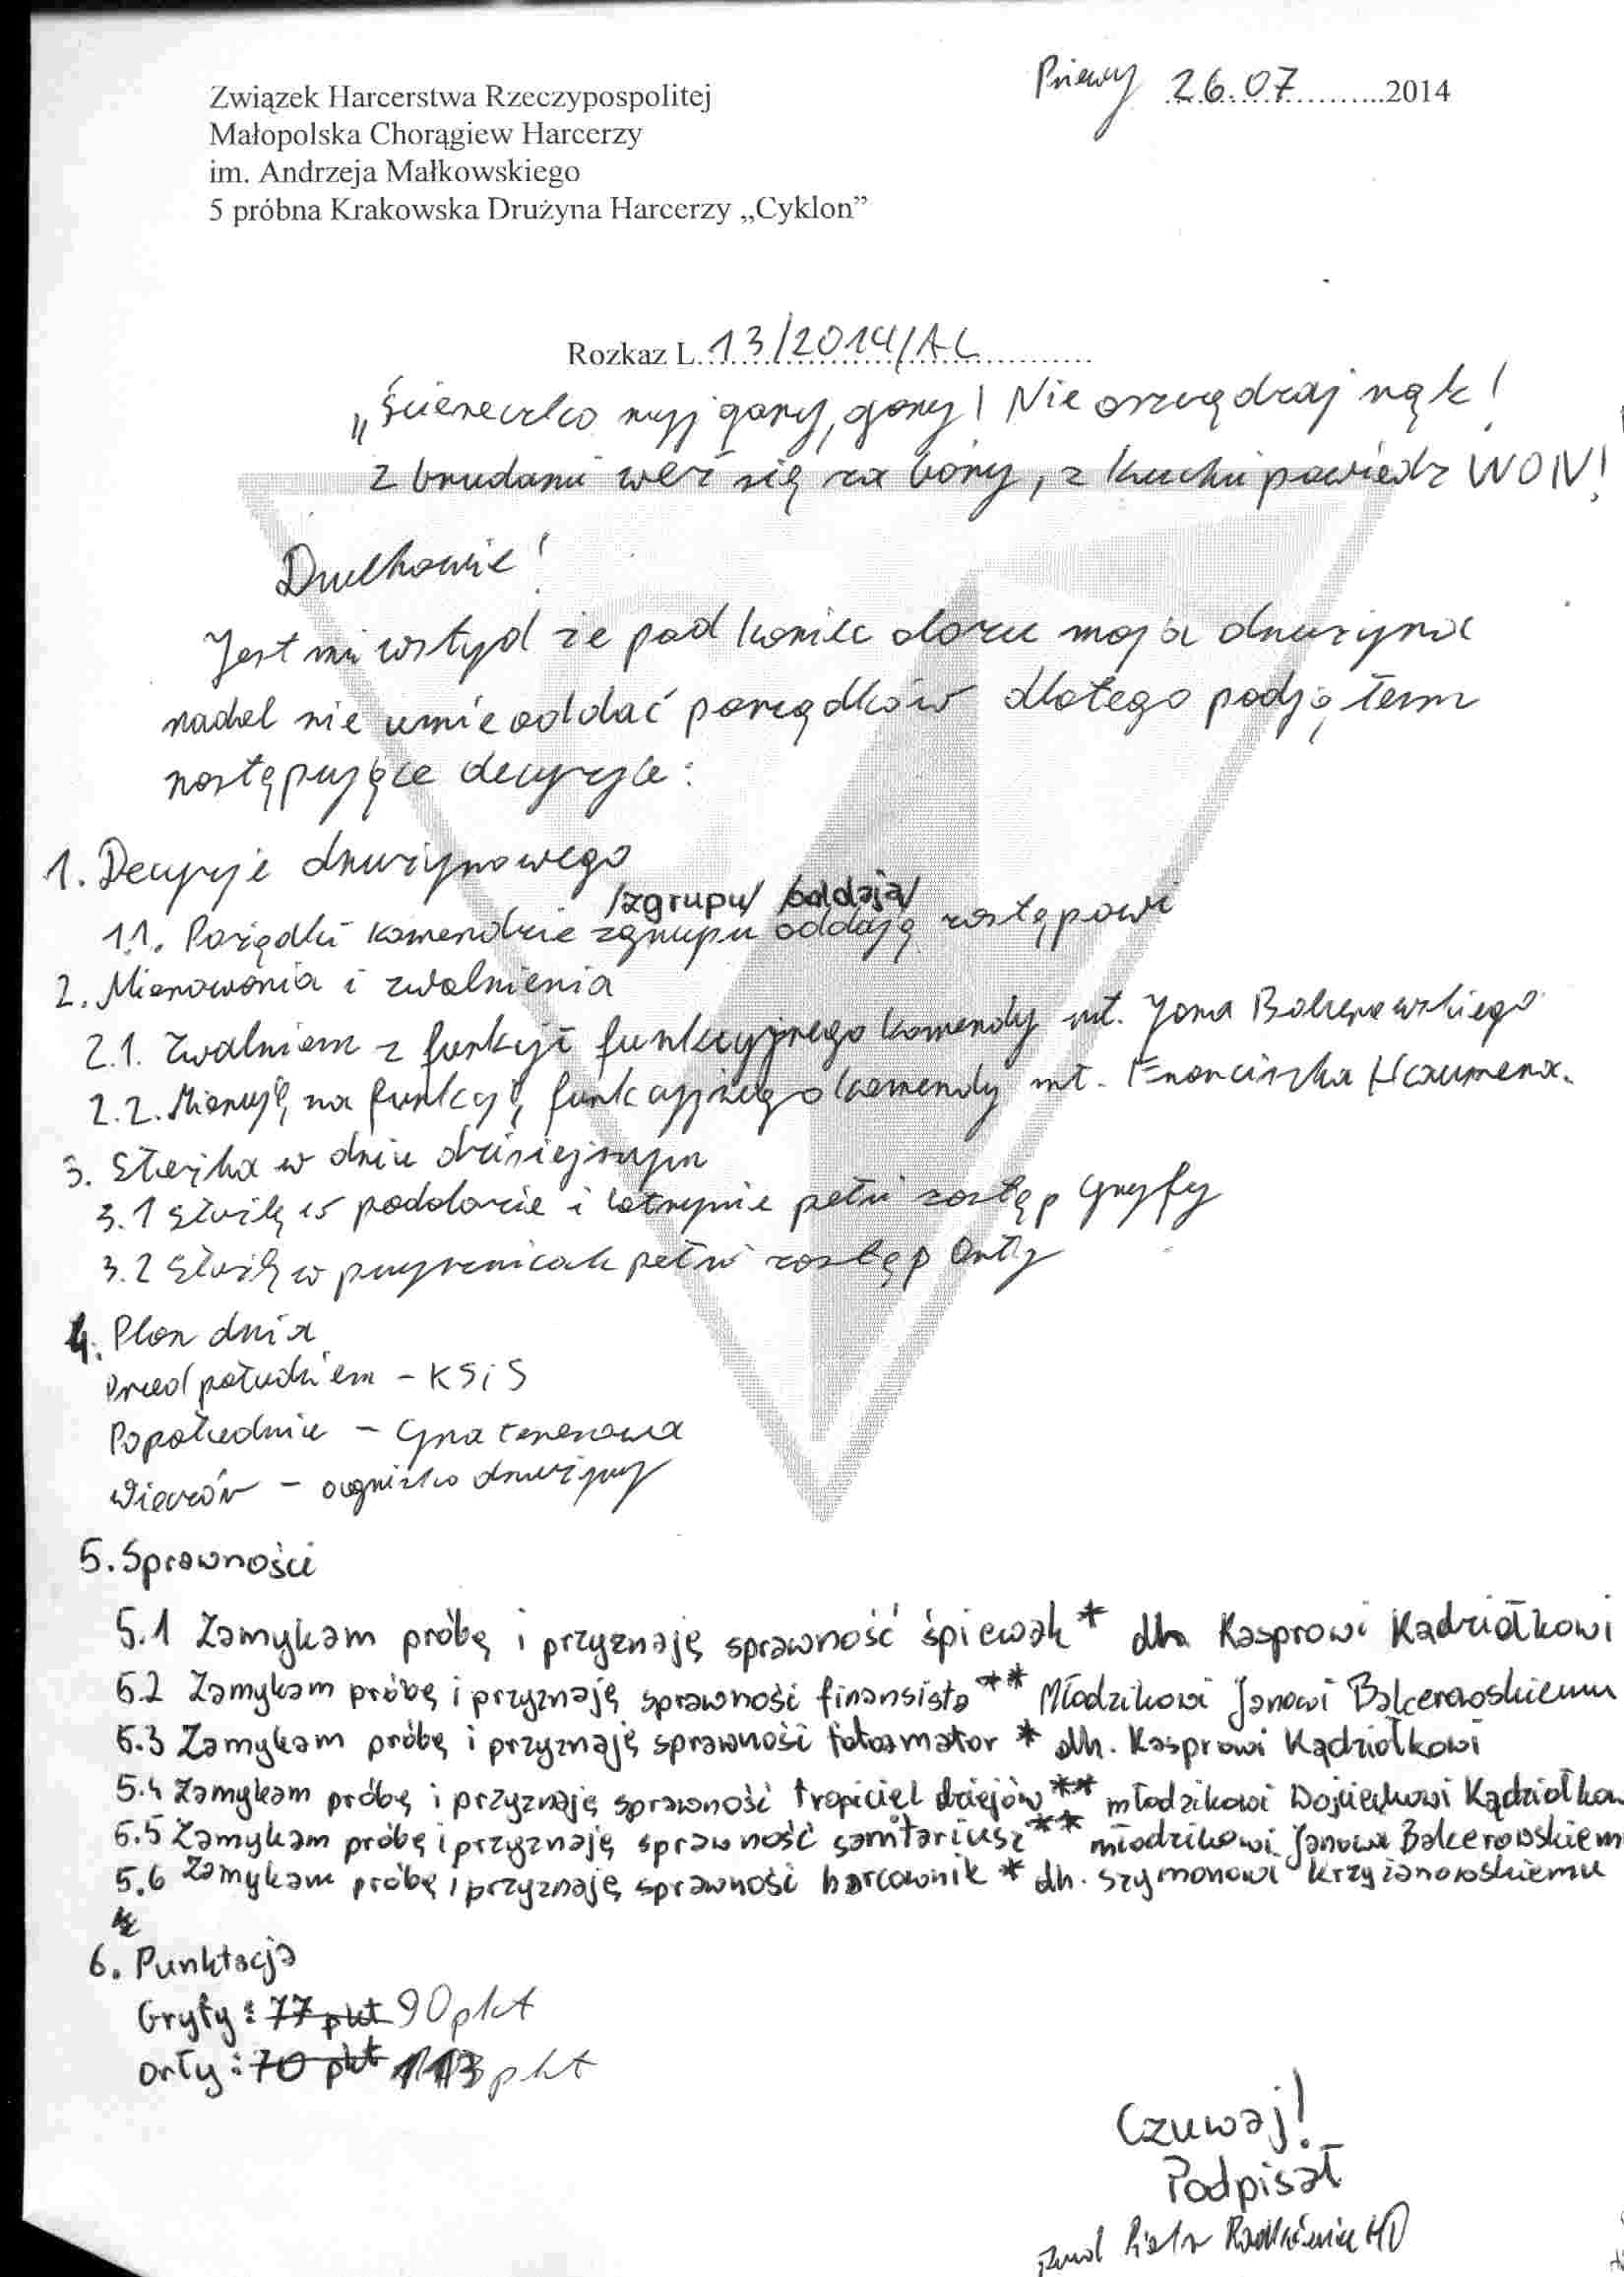 Pniewy 26.07..........2014
Związek Harcerstwa Rzeczypospolitej
Małopolska Chorągiew Harcerzy
im. Andrzeja Małkowskiego
5 próbna Krakowska Drużyna Harcerzy „Cyklon”
Rozkaz L. 13/2014/AL
„Ściereczko myj gary, gary! Nie oszczędzaj rąk!
Z brudami weź się za bary, z kuchni powiedz WON!
Druhowie!
Jest mi wstyd że pod koniec obozu moja drużyna
nadal nie umie oddać porządków dlatego podjąłem
następujące decyzje:
1. Decyzje drużynowego
/zgrupu/ /oddają/
1.1. Porządki komendzie zgrupu oddają zastępowi
2. Mianowania i zwolnienia
2.1. Zwalniam z funkcji funkcyjnego komendy mł. Jana Balcerowskiego
2.2. Mianuję na funkcję funkcyjnego komendy mł. Franciszka
3. Służba w dniu dzisiejszym
3.1 Służbę w podobozie i latrynie pełni zastęp Gryfy
3.2 Służbę w prysznicach pełni zastęp Orły
4. Plan dnia
Przed południem - KSiS
Popołudniu - Gra terenowa
Wieczór - ognisko drużyny
5. Sprawności
5.1 Zamykam próbę i przyznaję sprawność śpiewak* dh Kasprowi Kądziołkowi
5.2 Zamykam próbę i przyznaję sprawność finansista** Młodzikowi Janowi Balcerowskiemu
5.3 Zamykam próbę i przyznaję sprawność fotoamator * dh. Kasprowi Kądziołkowi
5.4 Zamykam próbę i przyznaję sprawność tropiciel dziejów** młodzikowi Wojciechowi Kądziołkow
5.5 Zamykam próbę i przyznaję sprawność sanitariusz** młodzikowi Janowi Balcerowskiem
5.6 Zamykam próbę i przyznaję sprawność harcownik * dh. Szymonowi Krzyżanowskiemu
6. Punktacja
Gryfy: 77 pkt 90 pkt
Orły: 70 pkt 113 pkt
Czuwaj!
Podpisał
Piotr HO